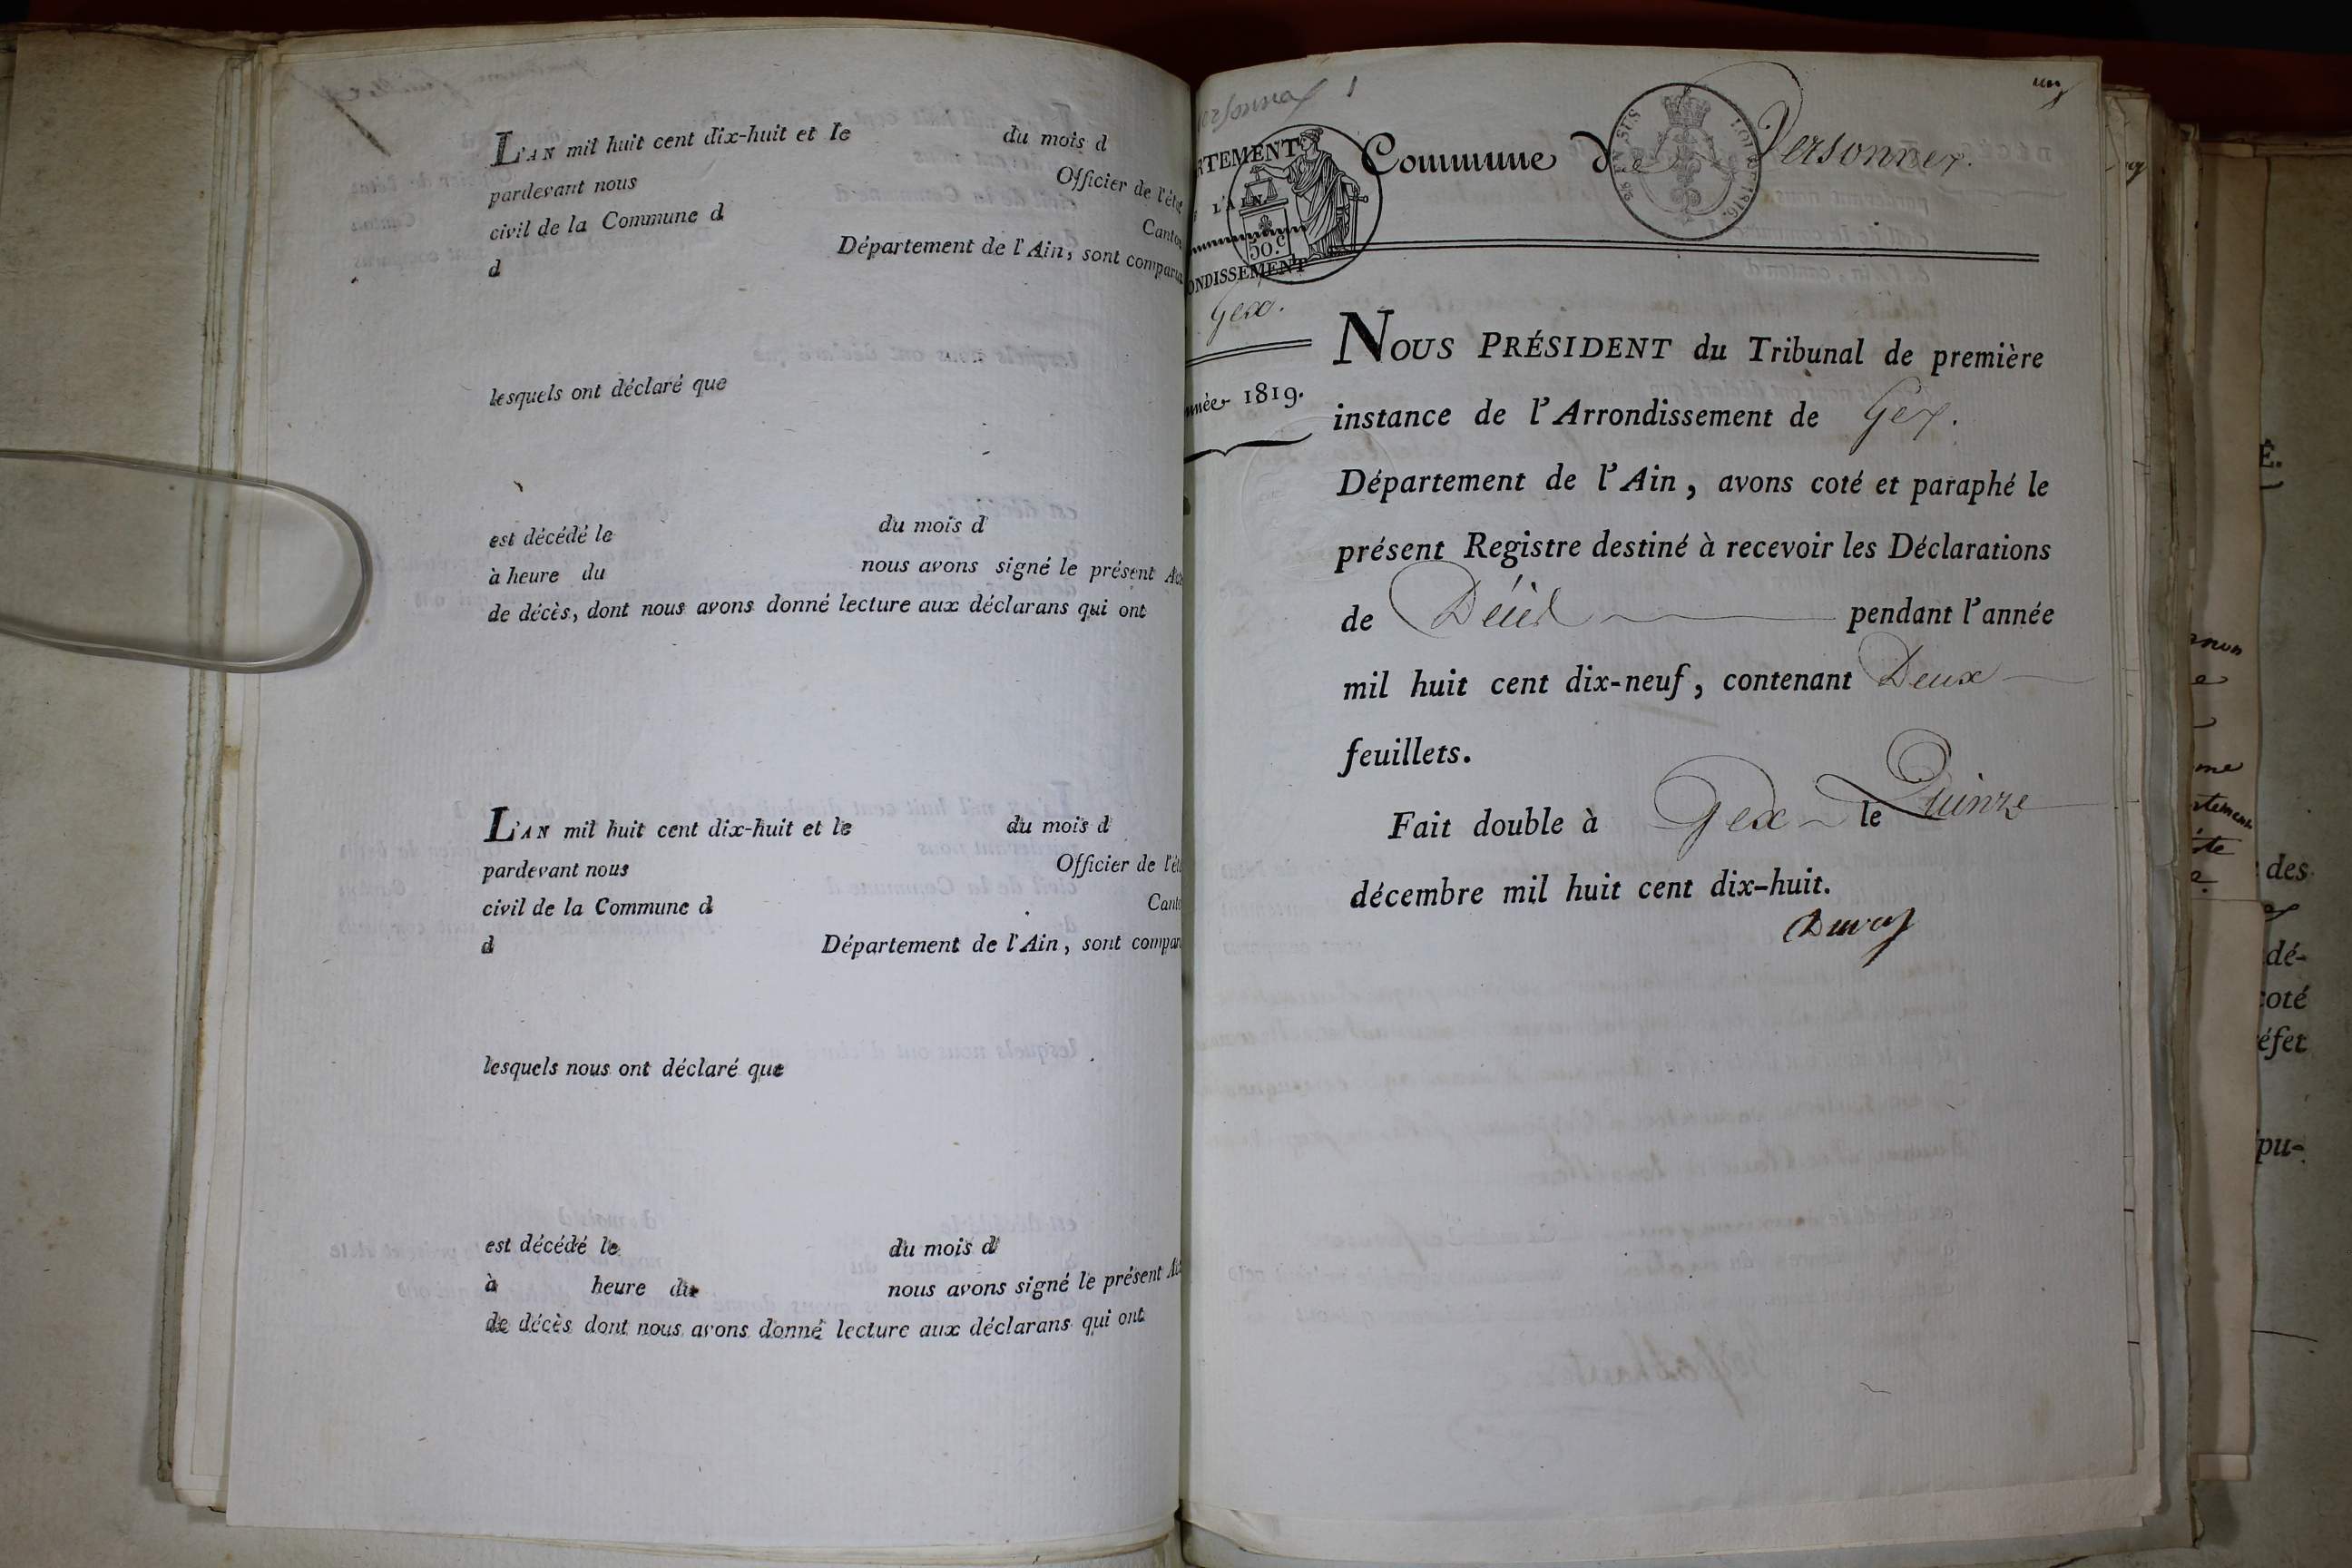 L'AN mil huit cent dix-huit et le du mois d
pardevant nous Officier de l'état
civil de la Commune d Canton
d Département de l'Ain, sont comparu
lesquels ont déclaré que
est décédé le du mois d
à heure du nous avons signé le présent Ac
de décès, dont nous avons donné lecture aux déclarans qui ont
L'AN mil huit cent dix-huit et le du mois d
pardevant nous Officier de l'ét
civil de la Commune d Cant
d Département de l'Ain, sont compar
lesquels nous ont déclaré que
est décédé le du mois d
à heure du nous avons signé le présent Ac
de décès dont nous avons donné lecture aux déclarans qui ont
1
un
RTEMENT
L'AIN
50.c
ONDISSEMENT
Gex.
nnée 1819.
Commune de Versonnex.
NOUS PRÉSIDENT du Tribunal de première
instance de l'Arrondissement de Gex.
Département de l'Ain, avons coté et paraphé le
présent Registre destiné à recevoir les Déclarations
de Décès pendant l'année
mil huit cent dix-neuf, contenant Deux
feuillets.
Fait double à Gex le Quinze
décembre mil huit cent dix-huit.
É.
des
dé-
coté
éfet
pu-